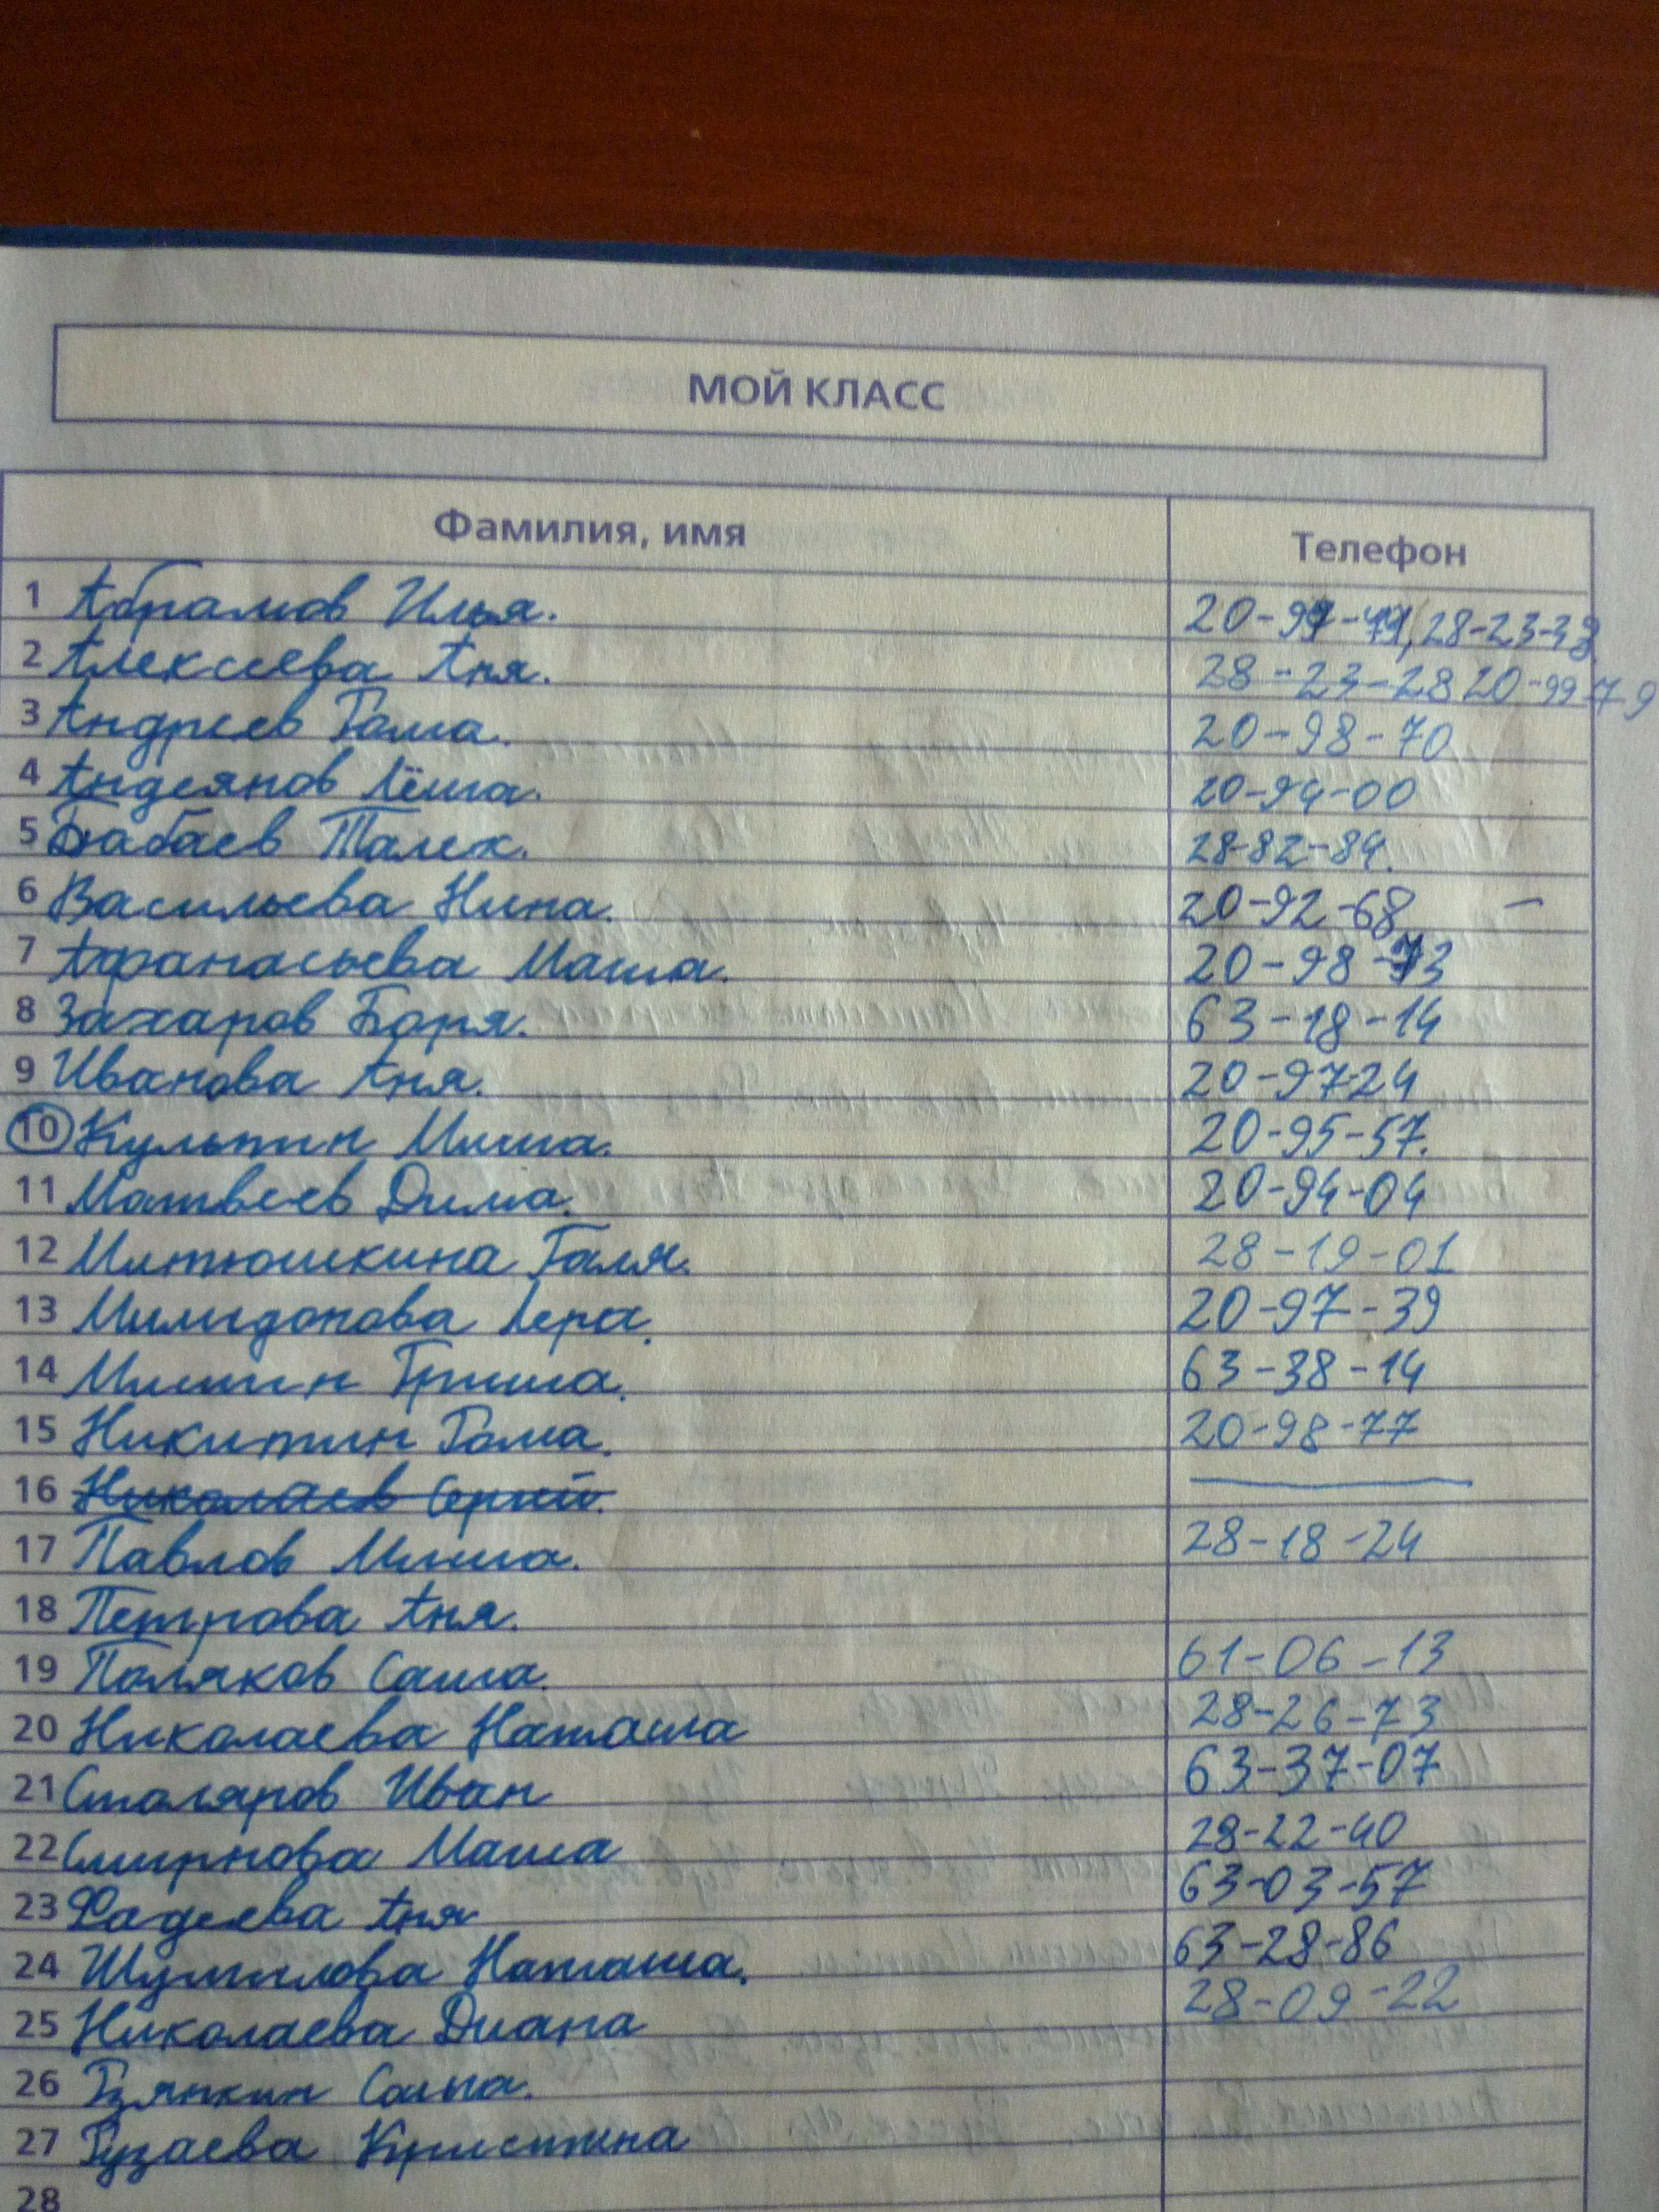 МОЙ КЛАСС
Фамилия, имя Телефон
1 Абрамов Илья. 20-99-, 28-23-33
2 Алексеева Аня. 28-23-28 20-99-79
3 Андреев Гоша. 20-98-70
4 Андеянов Лёша. 20-94-00
5 Бабаев Талех. 28-82-84.
6 Васильева Нина. 20-92-68 –
7 Афанасьева Маша. 20-98-73
8 Захаров Боря. 63-18-14
9 Иванова Аня. 20-9724
10 Кульпин Миша. 20-95-57.
11 Матвеев Дима. 20-94-04
12 Митюшкина Галя. 28-19-01
13 Милидонова Лера. 20-97-39
14 Мишин Гриша. 63-38-14
15 Никитин Гоша. 20-98-77
16 Николаев Сергей.
17 Павлов Миша. 28-18-24
18 Петрова Аня.
19 Поляков Саша. 61-06-13
20 Николаева Наташа 28-26-73
21 Столяров Иван 63-37-07
22 Смирнова Маша 28-22-40
23 Фадеева Аня 63-03-57
24 Шумилова Наташа. 63-28-86
25 Николаева Диана 28-09-22
26 Гзянкин Саша.
27 Гузаева Кристина
28